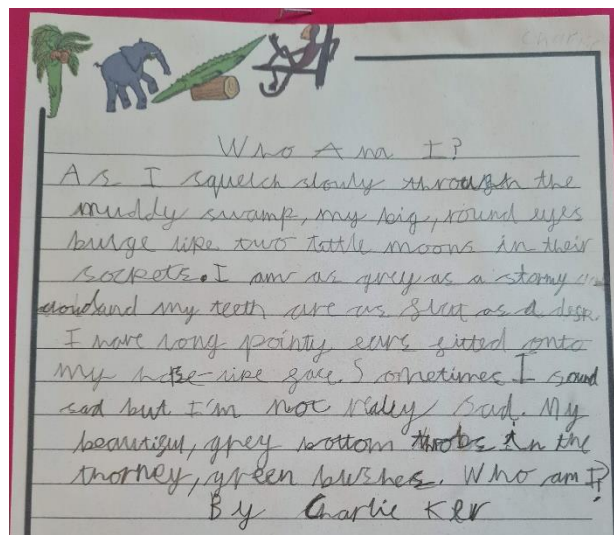 Charlie
Who Am I?
As I squelch slowly through the
muddy swamp, my big, round eyes
bulge like two tottle moons in their
sockets. I am as grey as a stormy
cloud and my teeth are as flat as a desk.
I have long pointy ears fitted onto
my horse-like face. Sometimes I sound
sad but I'm not realey sad. My
beautiful, grey bottom throbs in the
thorney, green bushes. Who am I?
By Charlie Ker